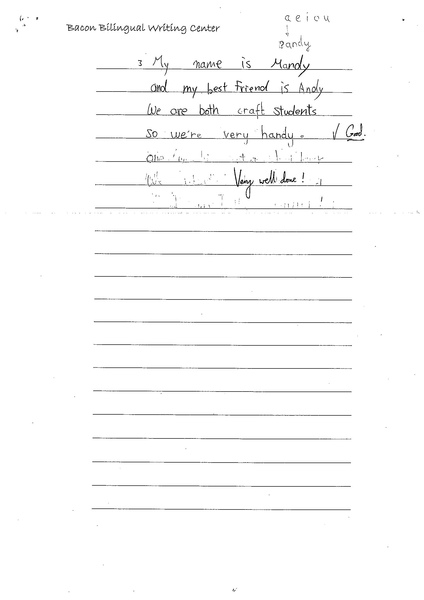 Bacon Bilingual Writing Center
a e i o u
↓
?andy
3 My name is Mandy
and my best friend is Andy
We are both craft students
So we're very handy. √ Good.
Very well done!